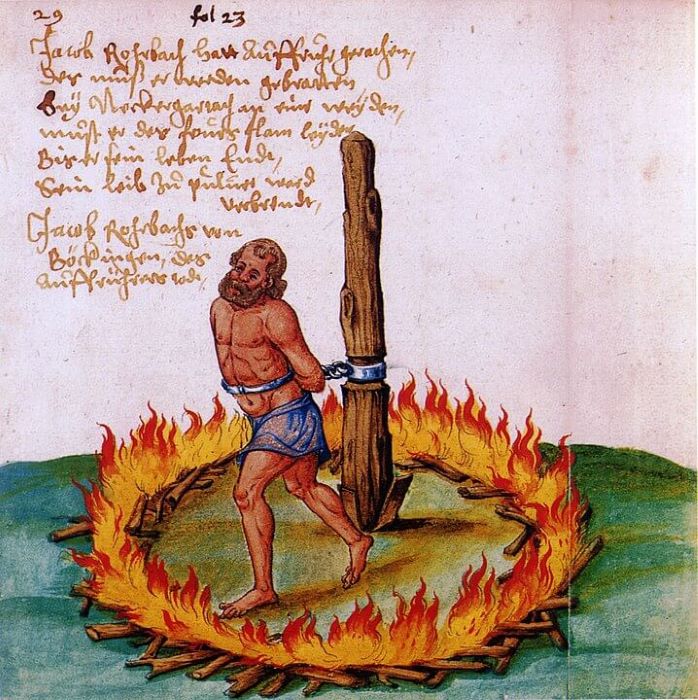 29 fol 23
Jacob Rohrbach hatt Auffruhr gerachen,
der muß er werden gebratten,
Bey Neckergartach an eine weyden,
must er des feurs flam leyden
Bis er sein leben Endt,
Sein leib zu puluer ward
verbrendt,
Jacob Rohrbachs von
Böckingen, des
Auffrührers tod,